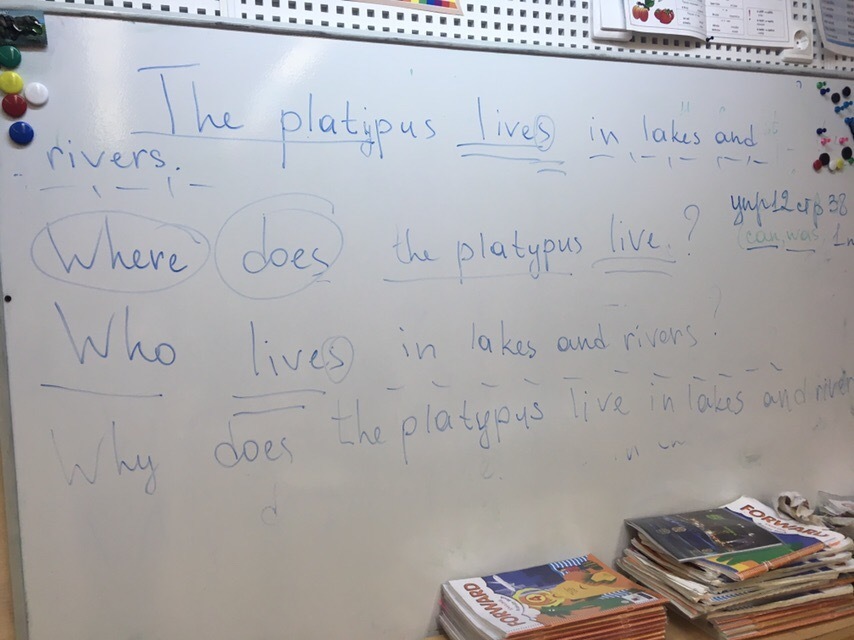 The platypus lives in lakes and
rivers.
упр12 стр 38
(can, was
Where does the platypus live.?
Who lives in lakes and rivers?
Why does the platypus live in lakes and river
FORWARD
FORWARD